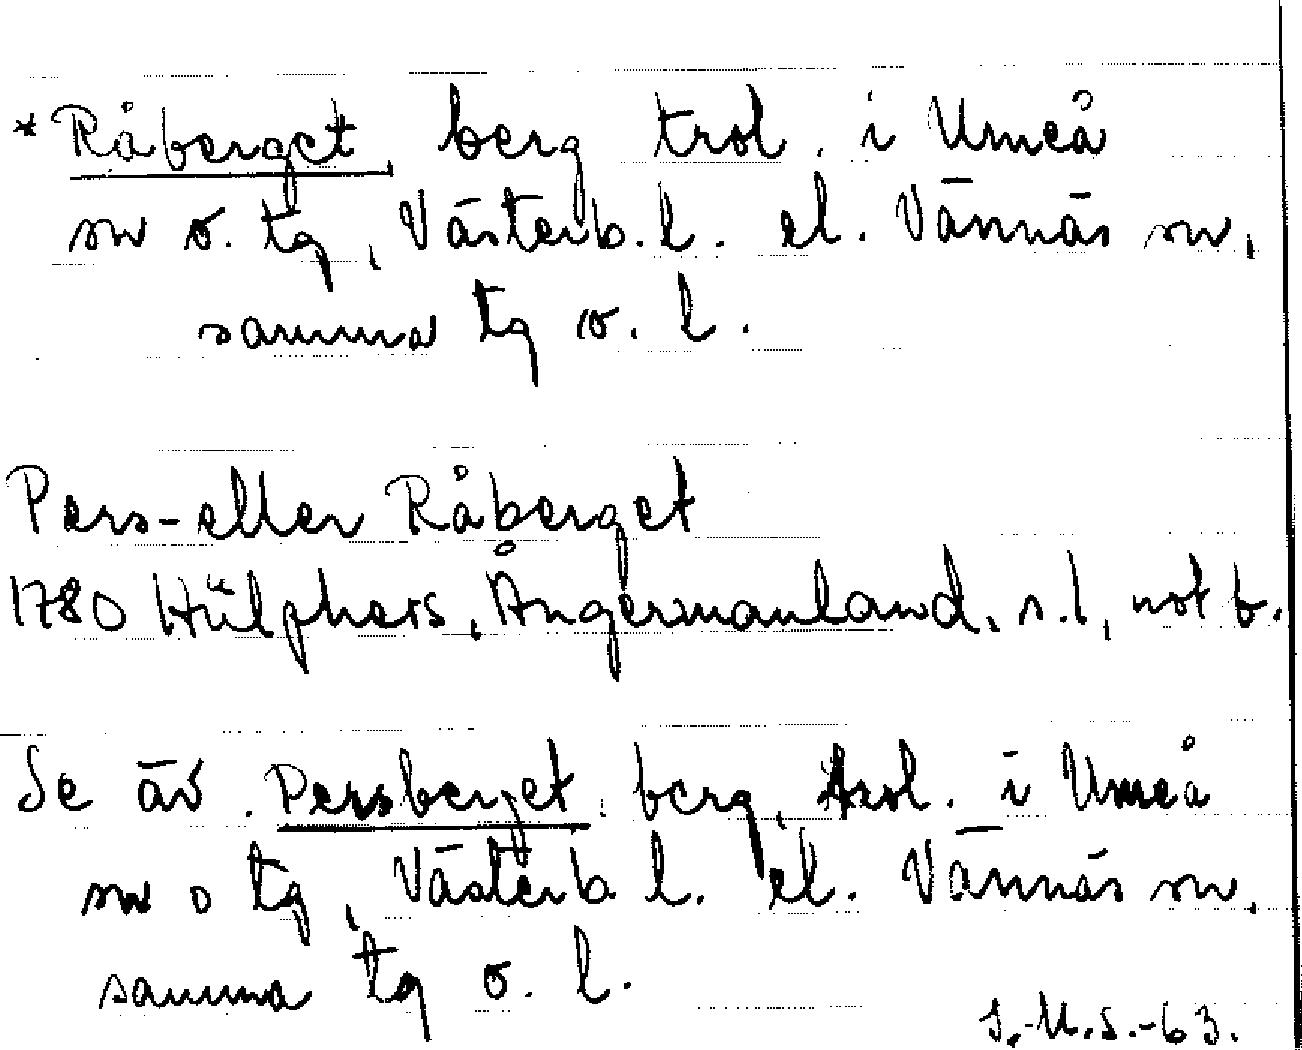 * Råberget, berg trol. i Umeå
sn o. tg, Västerb. l. el. Vännäs sn,
samma tg o. l.
Pers- eller Råberget
1780 Hülphers, Ångermanland, s. 1, not b.
Se äv. Persberget, berg, trol. i Umeå
sn o tg, Västerb l. el. Vännäs sn,
samma tg o. l.
I.-M.S.-63.